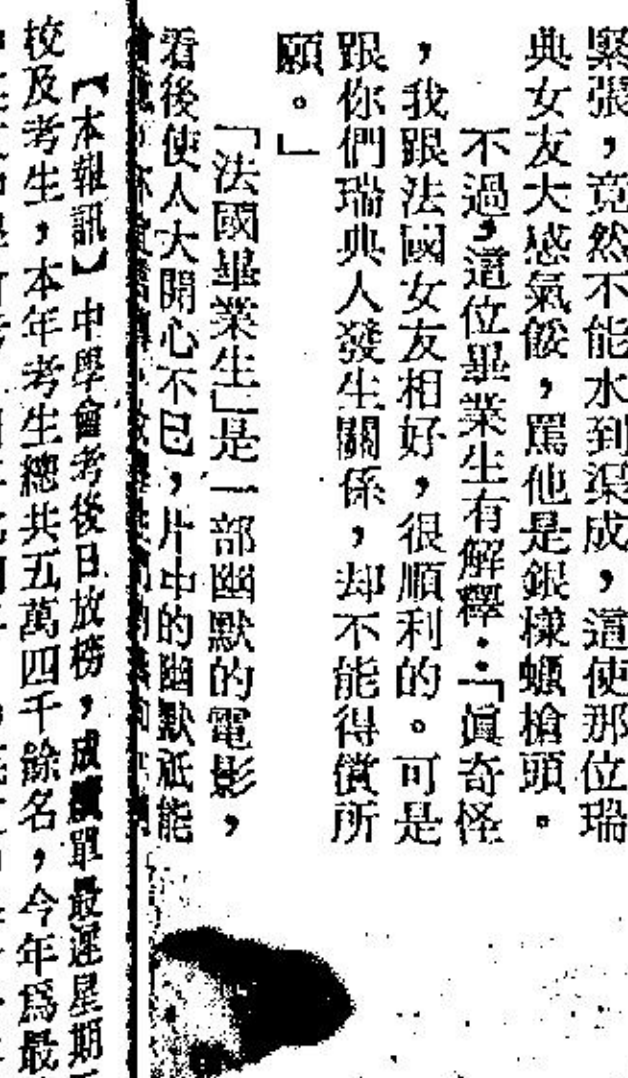 緊張，竟然不能水到渠成，這使那位瑞
典女友大感氣餒，罵他是銀樣蠟槍頭。
不過，這位畢業生有解釋：「眞奇怪
，我跟法國女友相好，很順利的。可是
跟你們瑞典人發生關係，却不能得償所
願。」
「法國畢業生」是一部幽默的電影，
看後使人大開心不已，片中的幽默祇能
【本報訊】中學會考後日放榜，成績單最遲星期
校及考生，本年考生總共五萬四千餘名，今年爲最